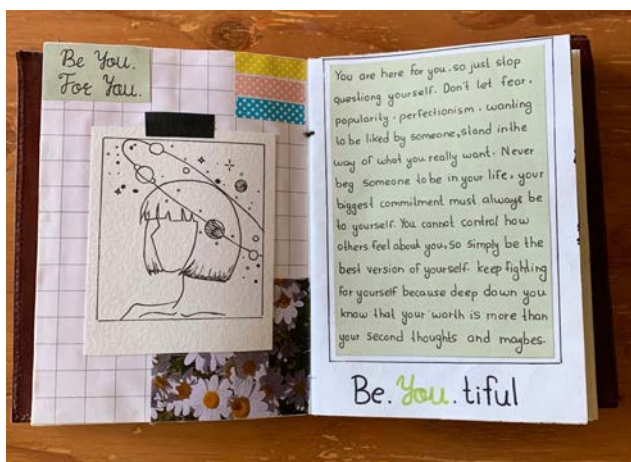 Be You.
For You.
You are here for you. so just stop
questiong yourself. Don't let fear.
popularity. perfectionism. wanting
to be liked by someone, stand in the
way of what you really want. Never
beg someone to be in your life, your
biggest commitment must always be
to yourself. You cannot control how
others feel about you, so simply be the
best version of yourself. keep fighting
for yourself because deep down you
know that your worth is more than
your second thoughts and maybes.
Be.You.tiful